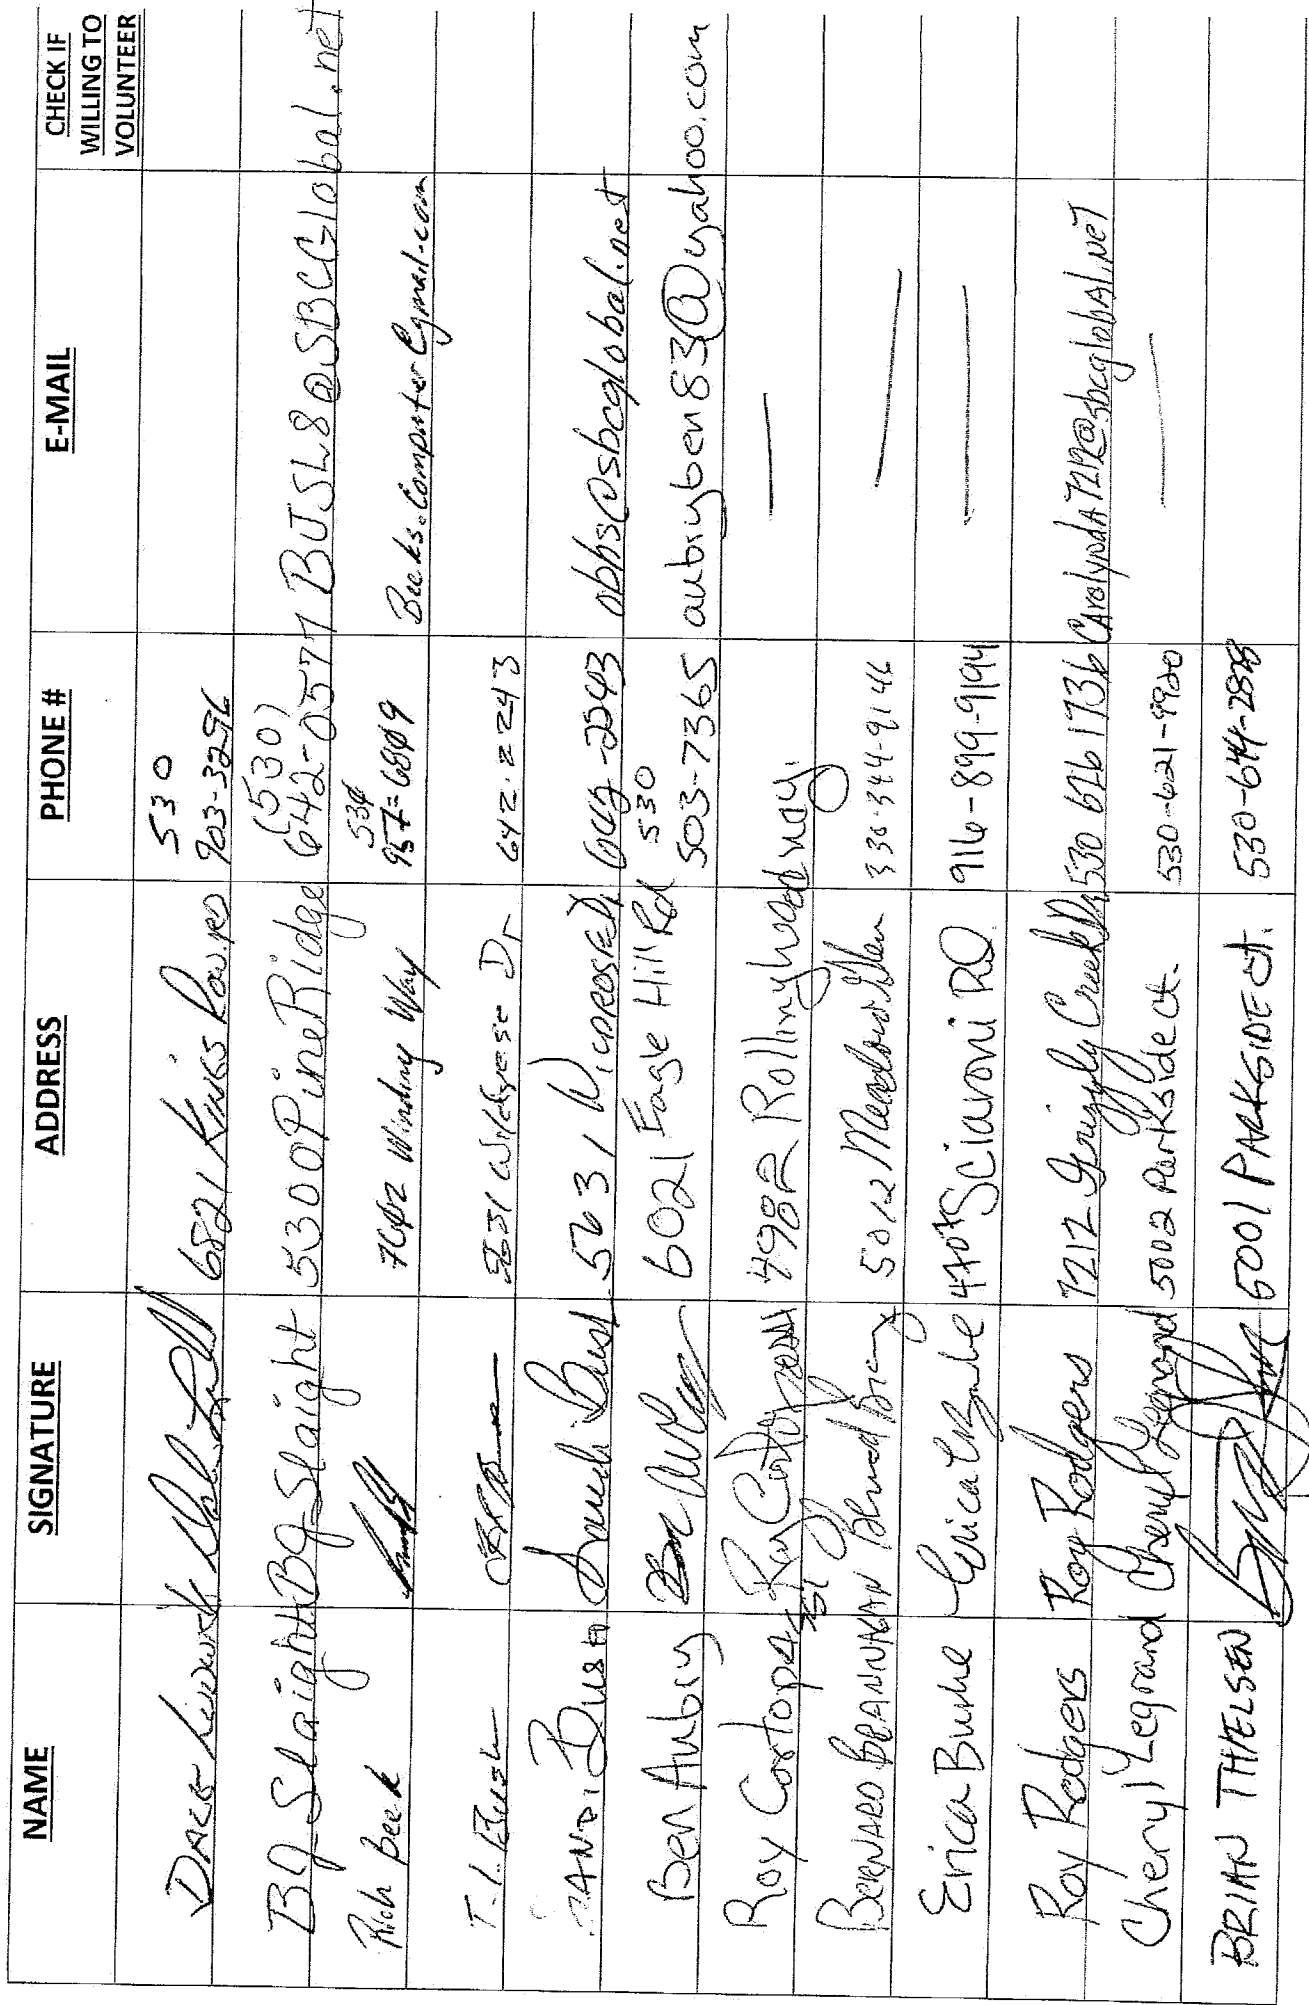 NAME SIGNATURE ADDRESS PHONE # E-MAIL CHECK IF WILLING TO VOLUNTEER
DALE 6821 KINGS ROW RD 530 903-3296
BJ Slaight BJ Slaight 5300 Pine Ridge (530) 642-0577 BJSL8@SBCGlobal.net
Rich Beek 7602 Winding Way 530 957-6809 Beeks.Computer@gmail.com
T.L. Bush 5631 Wildrose Dr 642.2243
SANDI BUSH Sandi Bush 5631 WILDROSE DR 642-2243 obhs@sbcglobal.net
Ben Aubry 6021 Eagle Hill Rd 530 503-7365 aubryben83@yahoo.com
Roy Cortopassi Roy Cortopassi 4982 Rollingwood way. —
BERNARD BRANNAGAN 5012 Meadow Glen 530-344-9146 —
Erica Burke Erica Burke Sciaroni RD 916-899-9194 —
Roy Rodgers Roy Rodgers 7212 Grizzly Creek Dr 530 626 1736 CArolyndA7212@sbcglobAl.NeT
Cheryl Legrand Cheryl Legrand 5002 Parkside ct. 530-621-9920 —
BRIAN THIELSEN 5001 PARKSIDE ct. 530-644-2878